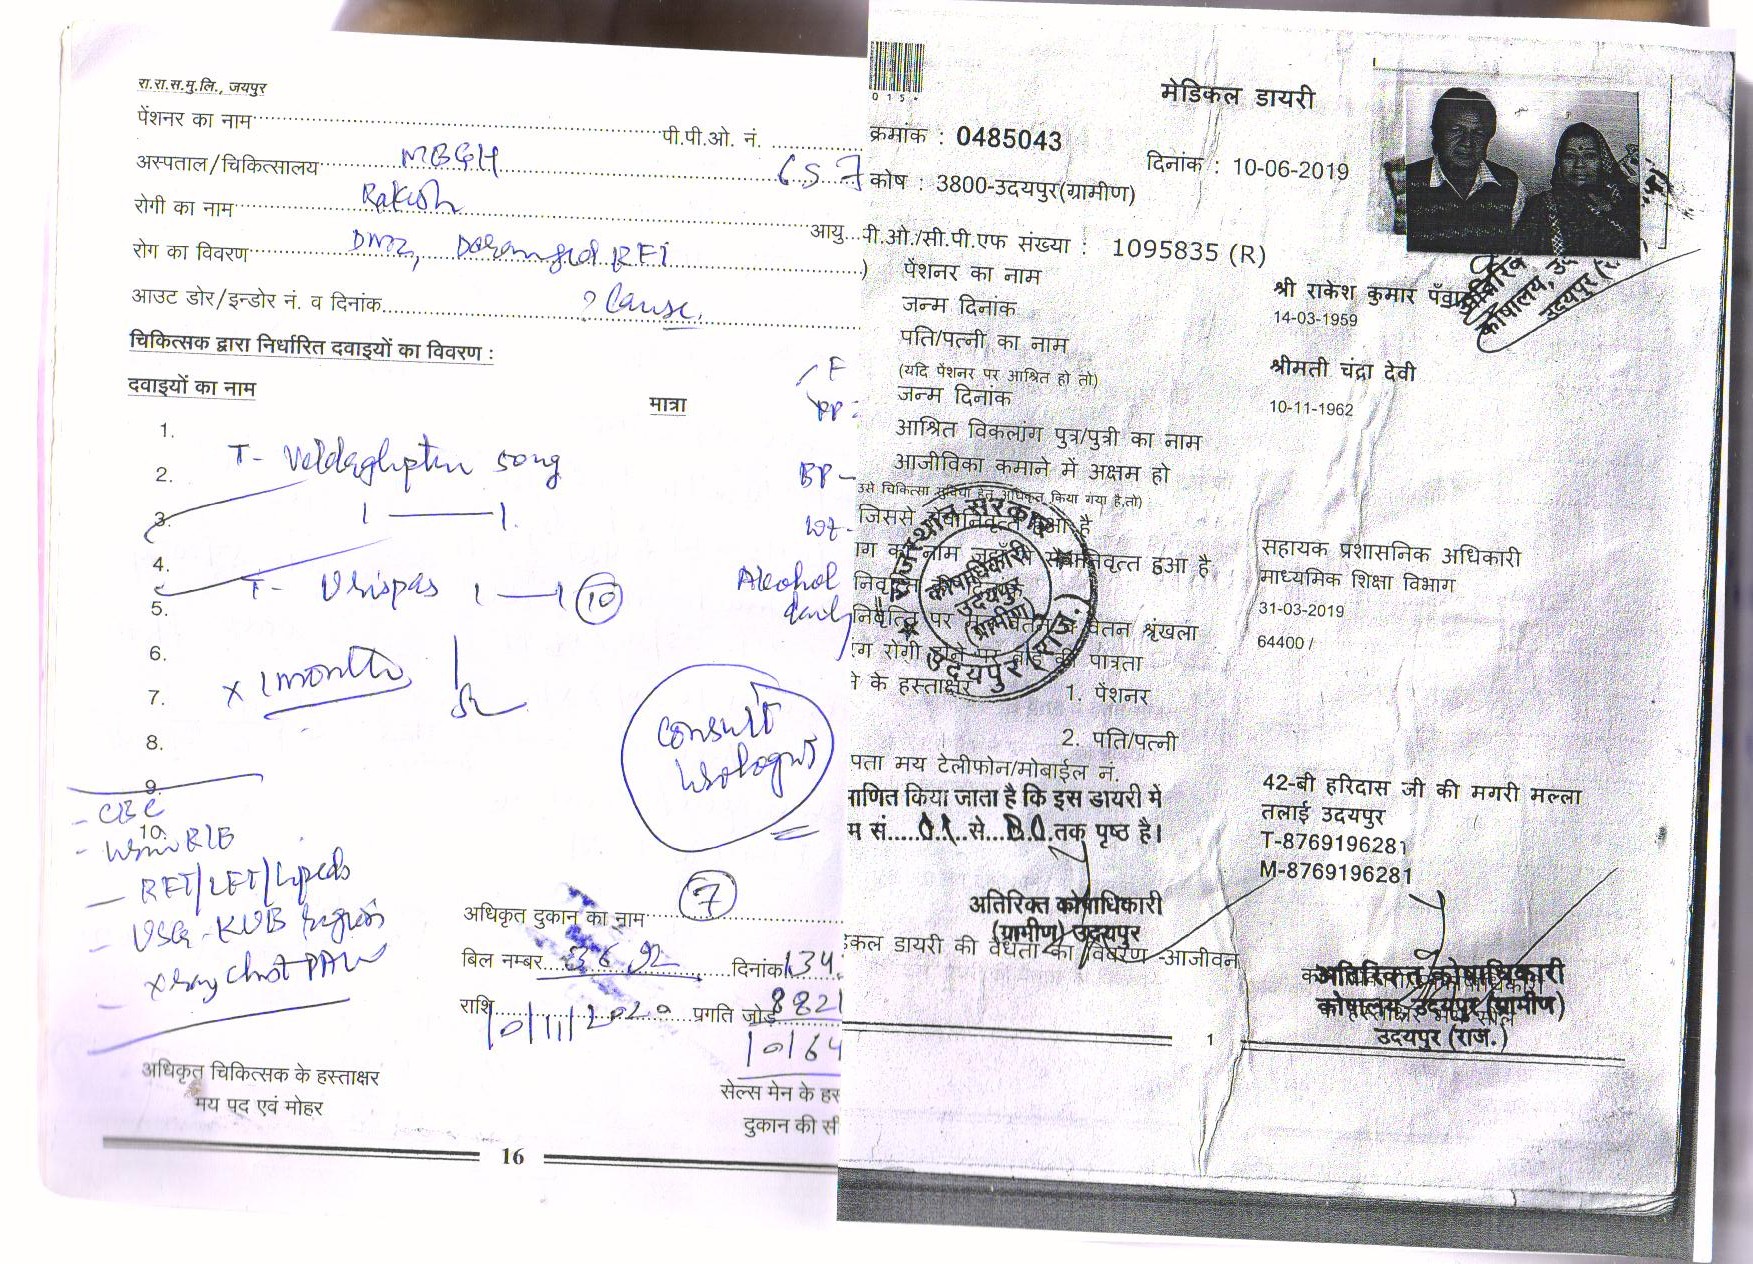 रा.रा.स.मु.लि., जयपुर
पेंशनर का नाम
पी.पी.ओ. नं.
अस्पताल/चिकित्सालय MBGH
रोगी का नाम Rakesh
आयु...
रोग का विवरण DM2, Deranged RFT
आउट डोर/इन्डोर नं. व दिनांक ? Cause.
चिकित्सक द्वारा निर्धारित दवाइयों का विवरण :
दवाइयों का नाम
मात्रा
1.
2. T- Vildagliptin 50mg
3. 1 — 1.
4.
5. T- Urispas 1 — 1 (10)
6.
7. x 1 month
8.
9.
10.
BP -
Wt -
Alcohol
daily
Consult
Urologist
- CBC
- Urine R/E
- RFT/LFT/Lipids
- USG - KUB region
- X-ray Chest PA
अधिकृत दुकान का नाम (7)
बिल नम्बर
दिनांक 134
राशि
प्रगति जोड़ 8821
10/11/2020
10164
अधिकृत चिकित्सक के हस्ताक्षर
मय पद एवं मोहर
सेल्स मेन के हस
दुकान की सी
16
015
मेडिकल डायरी
क्रमांक : 0485043
दिनांक : 10-06-2019
कोष : 3800-उदयपुर(ग्रामीण)
पी.ओ./सी.पी.एफ संख्या : 1095835 (R)
पेंशनर का नाम
श्री राकेश कुमार पँवार
जन्म दिनांक
14-03-1959
पति/पत्नी का नाम
श्रीमती चंद्रा देवी
(यदि पेंशनर पर आश्रित हो तो)
जन्म दिनांक
10-11-1962
आश्रित विकलांग पुत्र/पुत्री का नाम
आजीविका कमाने में अक्षम हो
उसे चिकित्सा सुविधा हेतु अधिकृत किया गया है,तो)
जिससे सेवानिवृत्त हुआ है
सहायक प्रशासनिक अधिकारी
ग का नाम जहाँ से सेवानिवृत्त हुआ है
माध्यमिक शिक्षा विभाग
31-03-2019
वेतन श्रृंखला
64400 /
पात्रता
के हस्ताक्षर
1. पेंशनर
2. पति/पत्नी
राजस्थान सरकार
कोषाधिकारी
उदयपुर
(ग्रामीण)
उदयपुर (राज.)
पता मय टेलीफोन/मोबाईल नं.
42-बी हरिदास जी की मगरी मल्ला
तलाई उदयपुर
T-8769196281
M-8769196281
माणित किया जाता है कि इस डायरी में
म सं.....01..से...80.तक पृष्ठ है।
अतिरिक्त कोषाधिकारी
(ग्रामीण) उदयपुर
डिकल डायरी की वैधता का विवरण -आजीवन
अतिरिक्त कोषाधिकारी
कोषालय, उदयपुर (ग्रामीण)
उदयपुर (राज.)
1